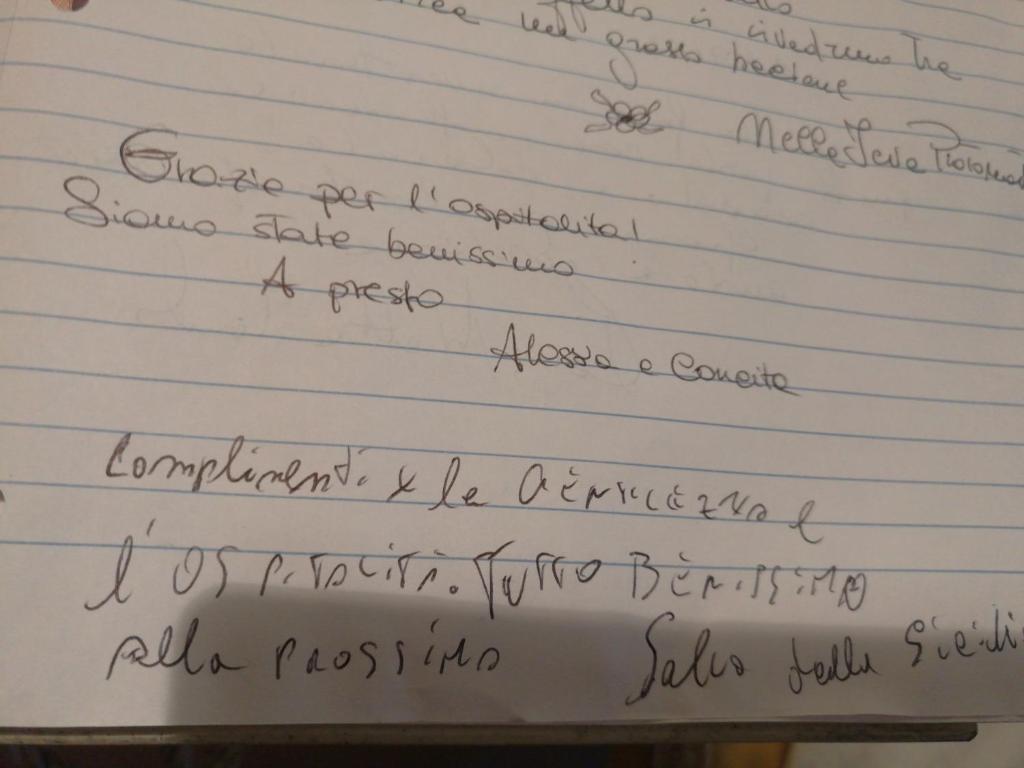 ci rivedremo tra
nel grosso
Grazie per l'ospitalità!
Siamo state benissimo
A presto
Alessia e Concita
Complimenti x la Gentilezza e
l'Ospitalità. Tutto Benissimo
alla prossima Salvo dalla Sicili